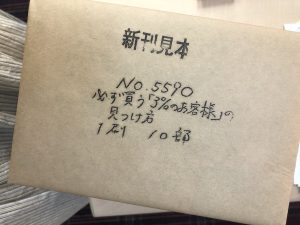 新刊見本
NO.5590
必ず買う「3%のお客様」の
見つけ方
1刷 10部